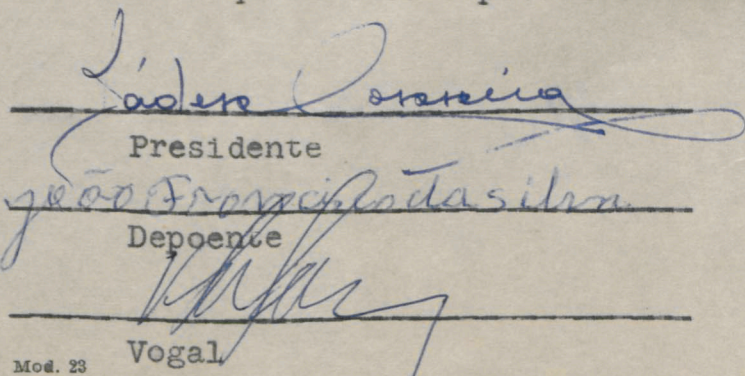 Láder Correia
Presidente
João Francisco da Silva
Depoente
Vogal
Mod. 23